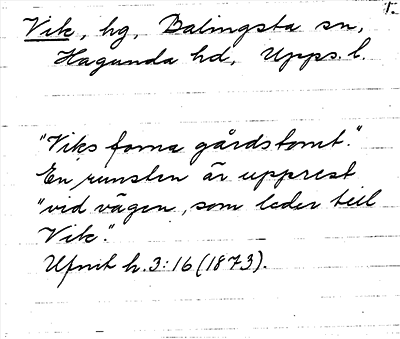 Vik, hg, Balingsta sn,
Hagunda hd, Upps. l.
"Viks forna gårdstomt."
En runsten är upprest
"vid vägen, som leder till
Vik".
Ufmit h. 3:16 (1873).